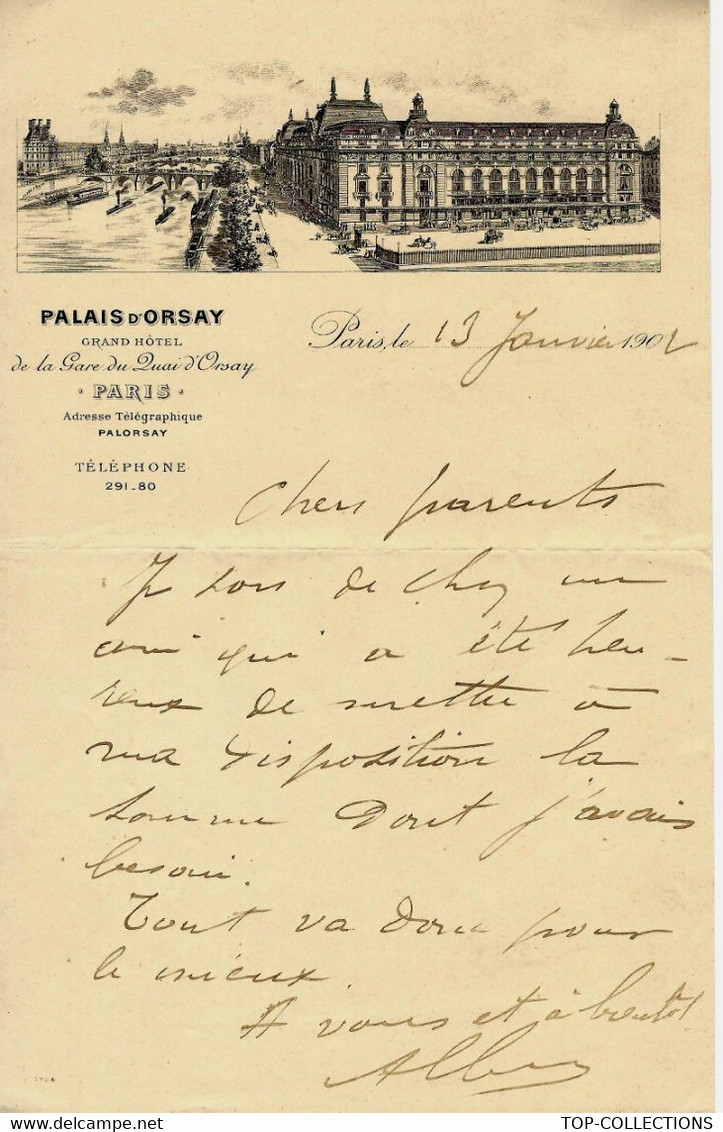 PALAIS D'ORSAY
GRAND HÔTEL
de la Gare du Quai d'Orsay
· PARIS ·
Adresse Télégraphique
PALORSAY
TÉLÉPHONE
291-80
Paris, le 13 Janvier 1902
Chers parents
Je sors de chez un
ami qui a été heu-
reux de mettre à
ma disposition la
somme dont j'avais
besoin.
Tout va donc pour
le mieux.
A vous et à bientôt
Albert
TOP-COLLECTIONS